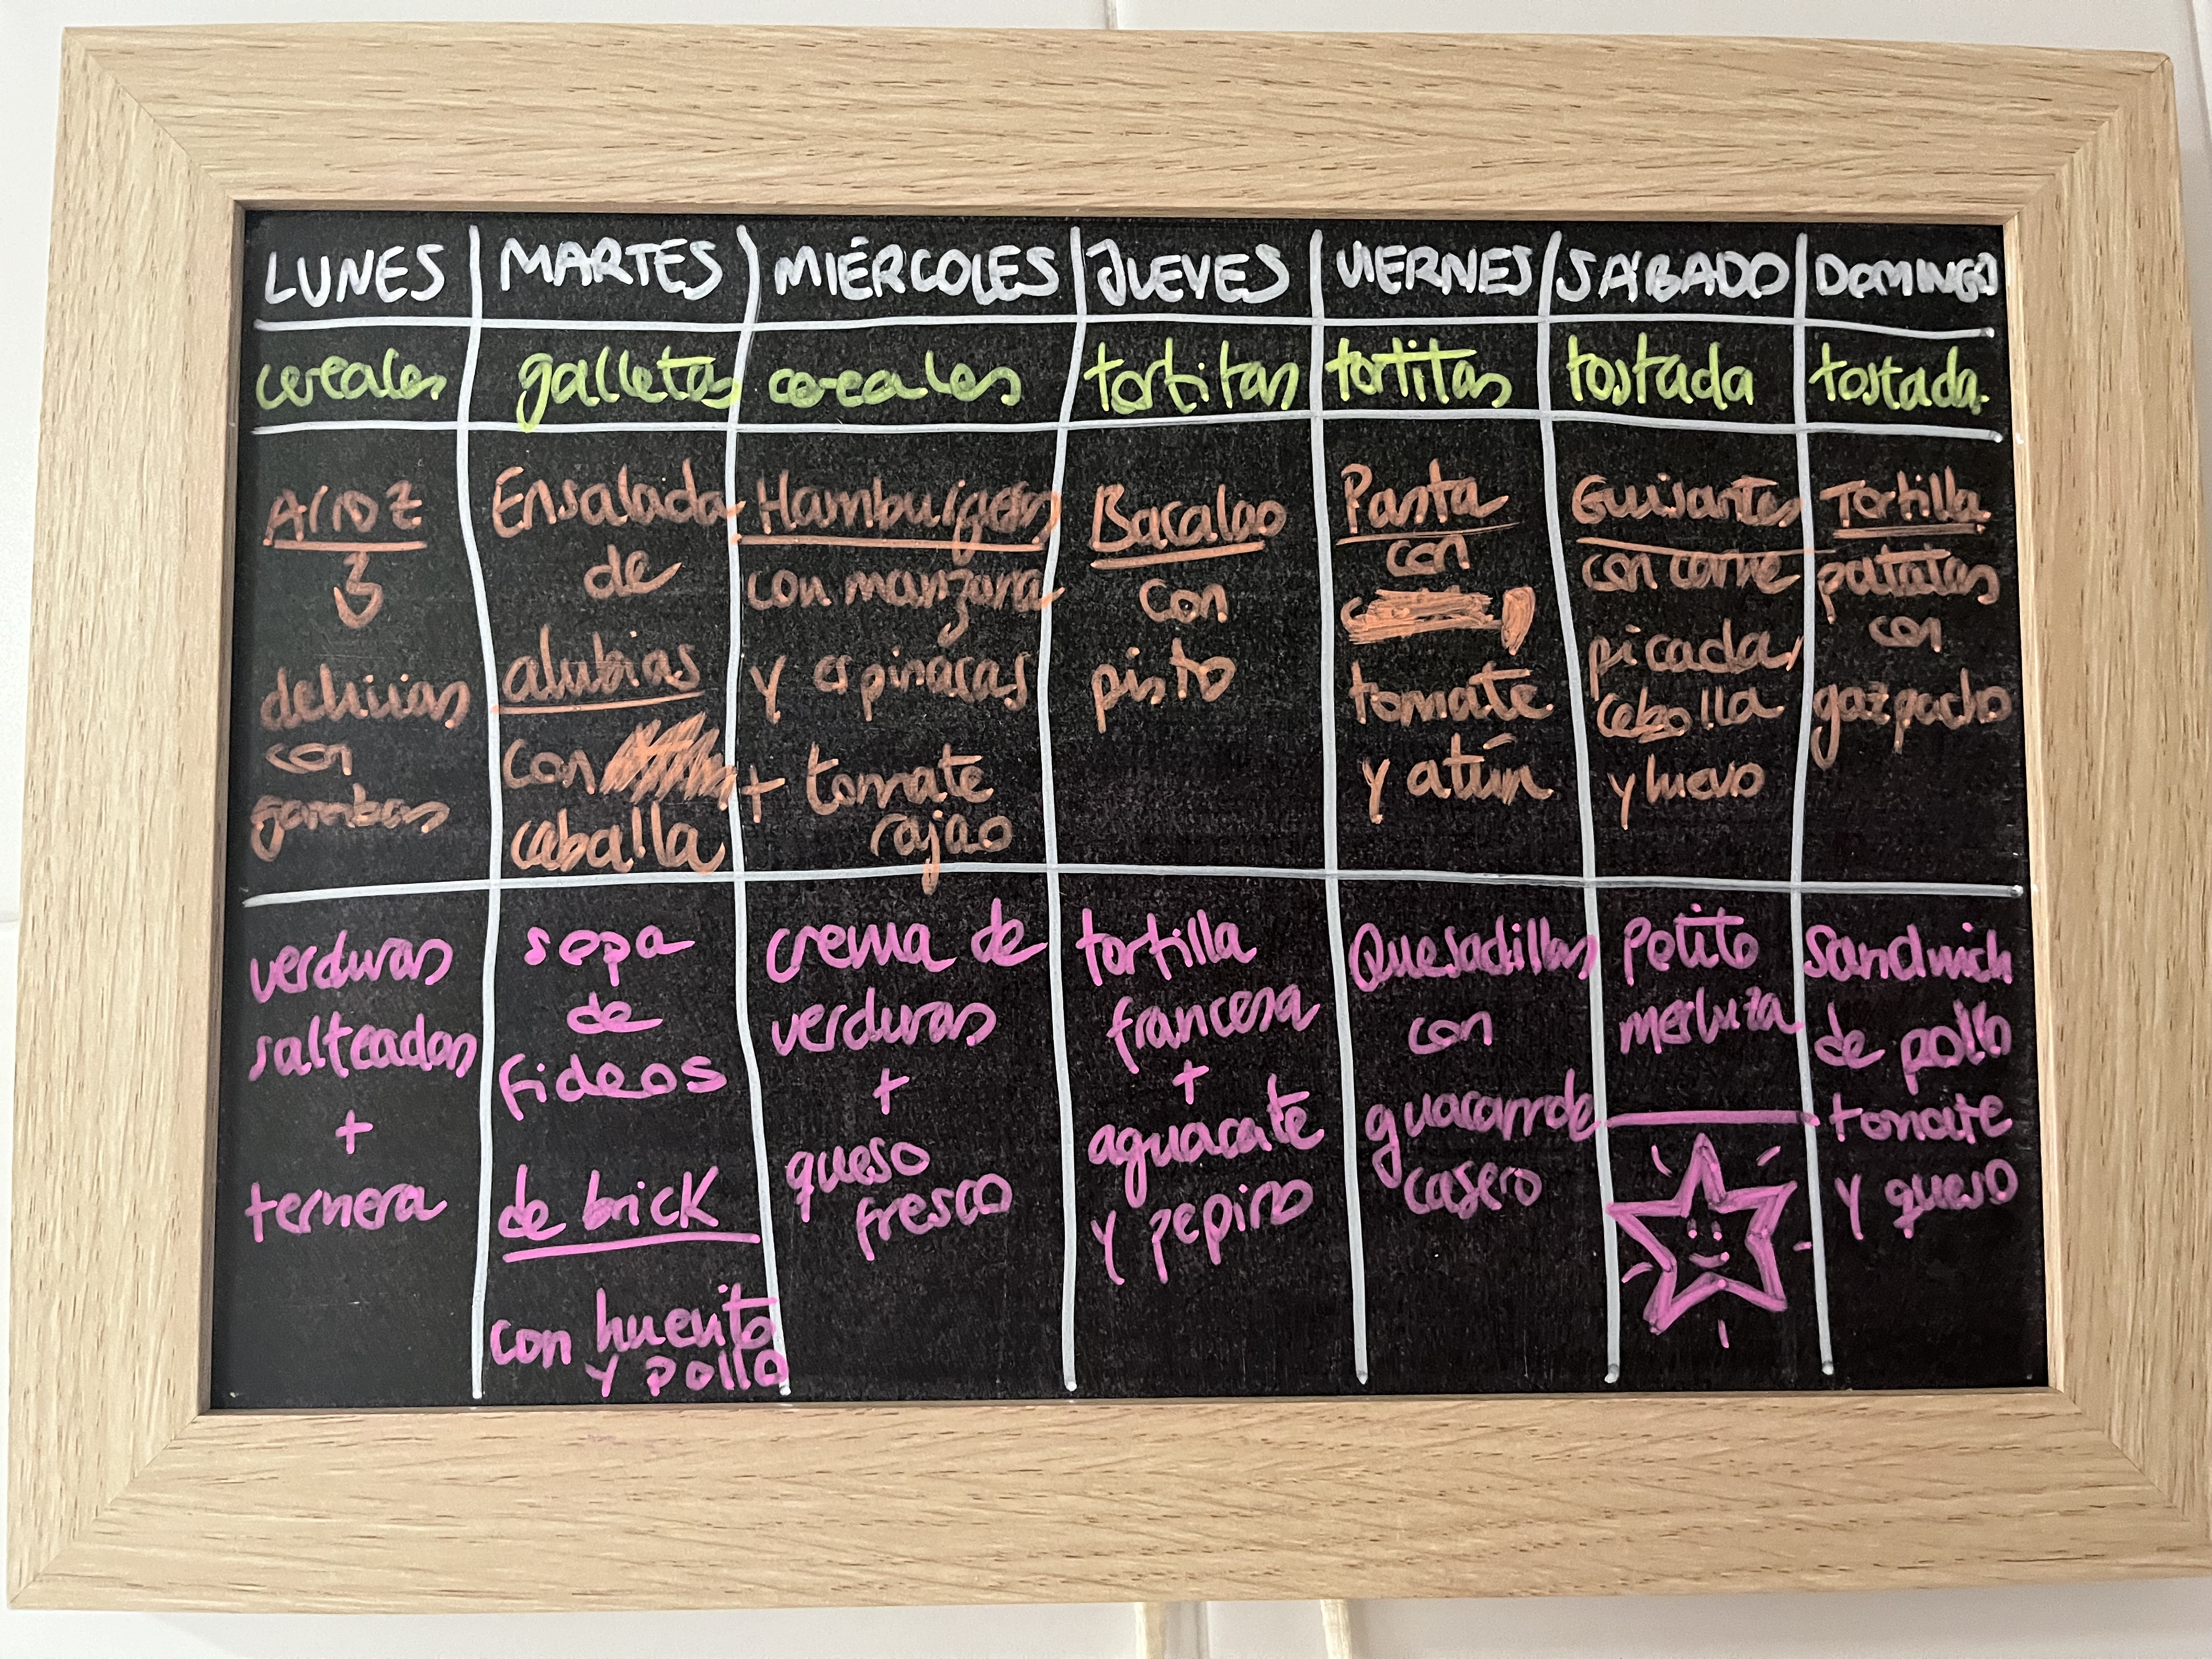 LUNES MARTES MIÉRCOLES JUEVES VIERNES SÁBADO DOMINGO
cereales galletas cereales tortitas tortitas tostada tostada
Arroz
3
delicias
con
gambas
Ensalada
de
alubias
con
caballa
Hamburguesas
con manzana
y espinacas
+ tomate
rajao
Bacalao
con
pisto
Pasta
con
tomate
y atún
Guisantes
con carne
picada,
cebolla
y huevo
Tortilla
patatas
con
gazpacho
verduras
salteadas
+
ternera
sopa
de
fideos
de brick
con huevito
y pollo
crema de
verduras
+
queso
fresco
tortilla
francesa
+
aguacate
y pepino
Quesadillas
con
guacamole
casero
Petito
merluza
sandwich
de pollo
tomate
y queso